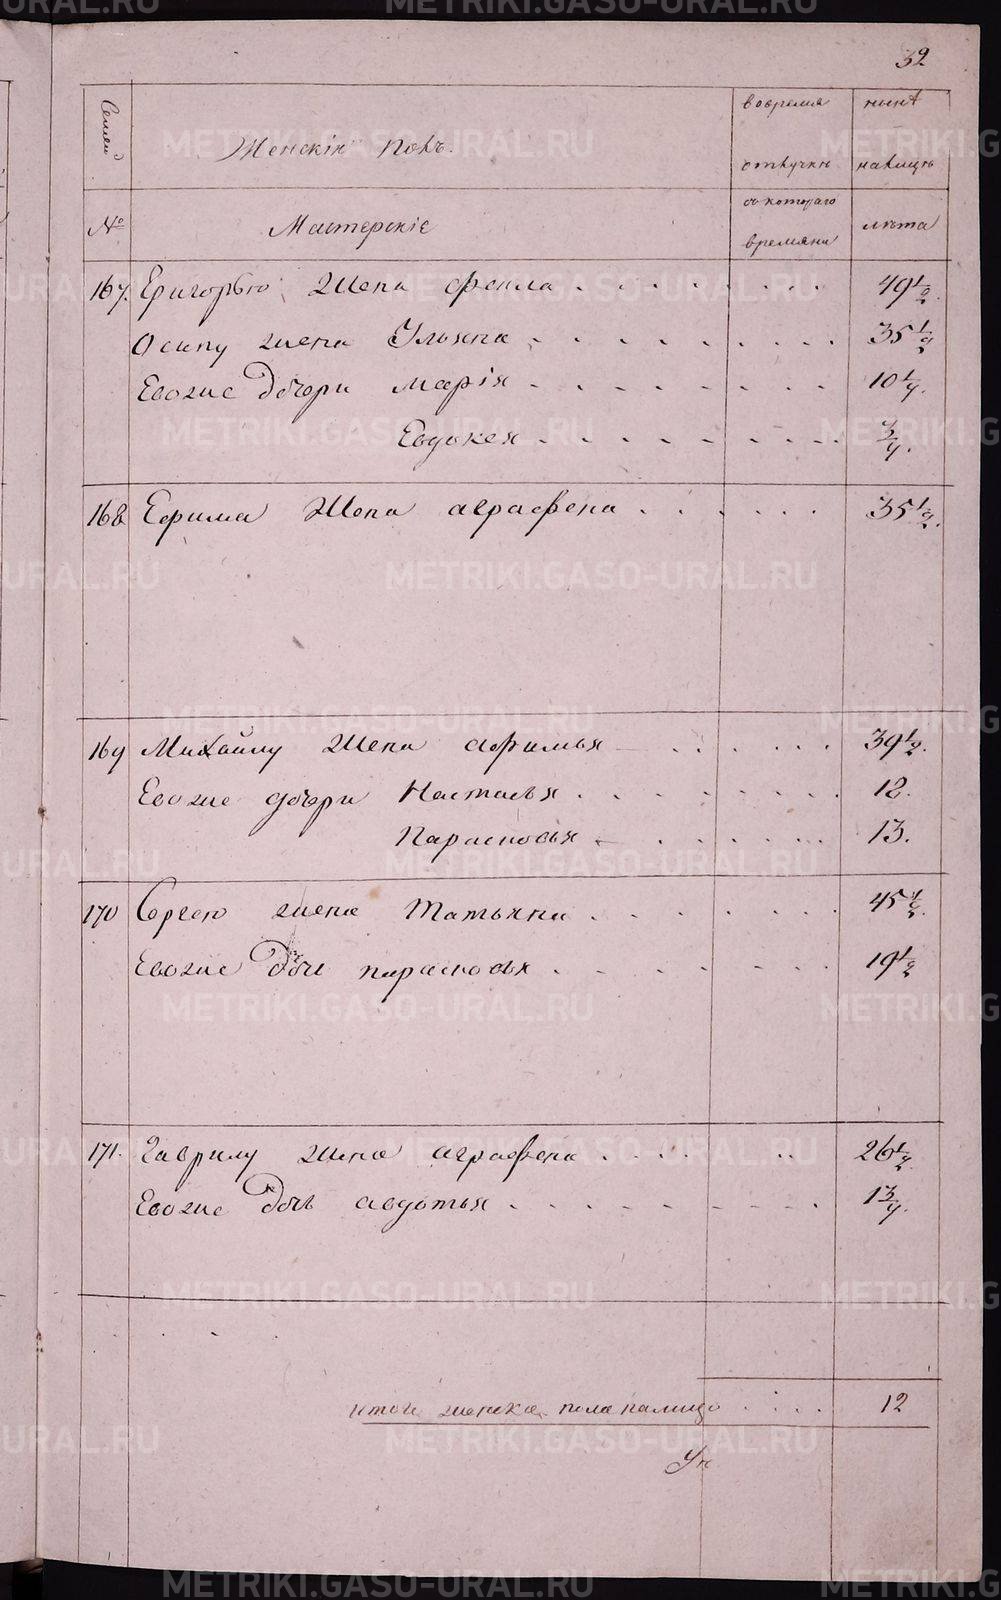 32
Семей
Женскiй Полъ.
вовремя
отлучкѣ
нынѣ
налицо
№
Мастерскiе
съ котораго
времяни
лѣта
167. Григорью Жена фекла . . . . . . . 49 1/2.
Осипу жена Ульяна . . . . . . . . . 35 1/2
Евоже дочери марiя . . . . . . . . 10 1/4.
Евдокея . . . . . . . 3/4.
168 Ефима Жена аграфена . . . . . . 35 1/2.
169 Михайлу Жена афимья . . . . . . 39 1/2.
Евоже дочери Настасья . . . . . . . 18.
Парасковья . . . . . . 13.
170 Сергею жена Татьяна . . . . . . . 45 1/2.
Евоже Дочь парасковья . . . . . . . 19 1/2
171. Гаврилу жена аграфена . . . . . . 26 1/2.
Евоже Дочь авдотья . . . . . . . . 1 3/4.
итого женска пола налицо . . . . 12
METRIKI.GASO-URAL.RU